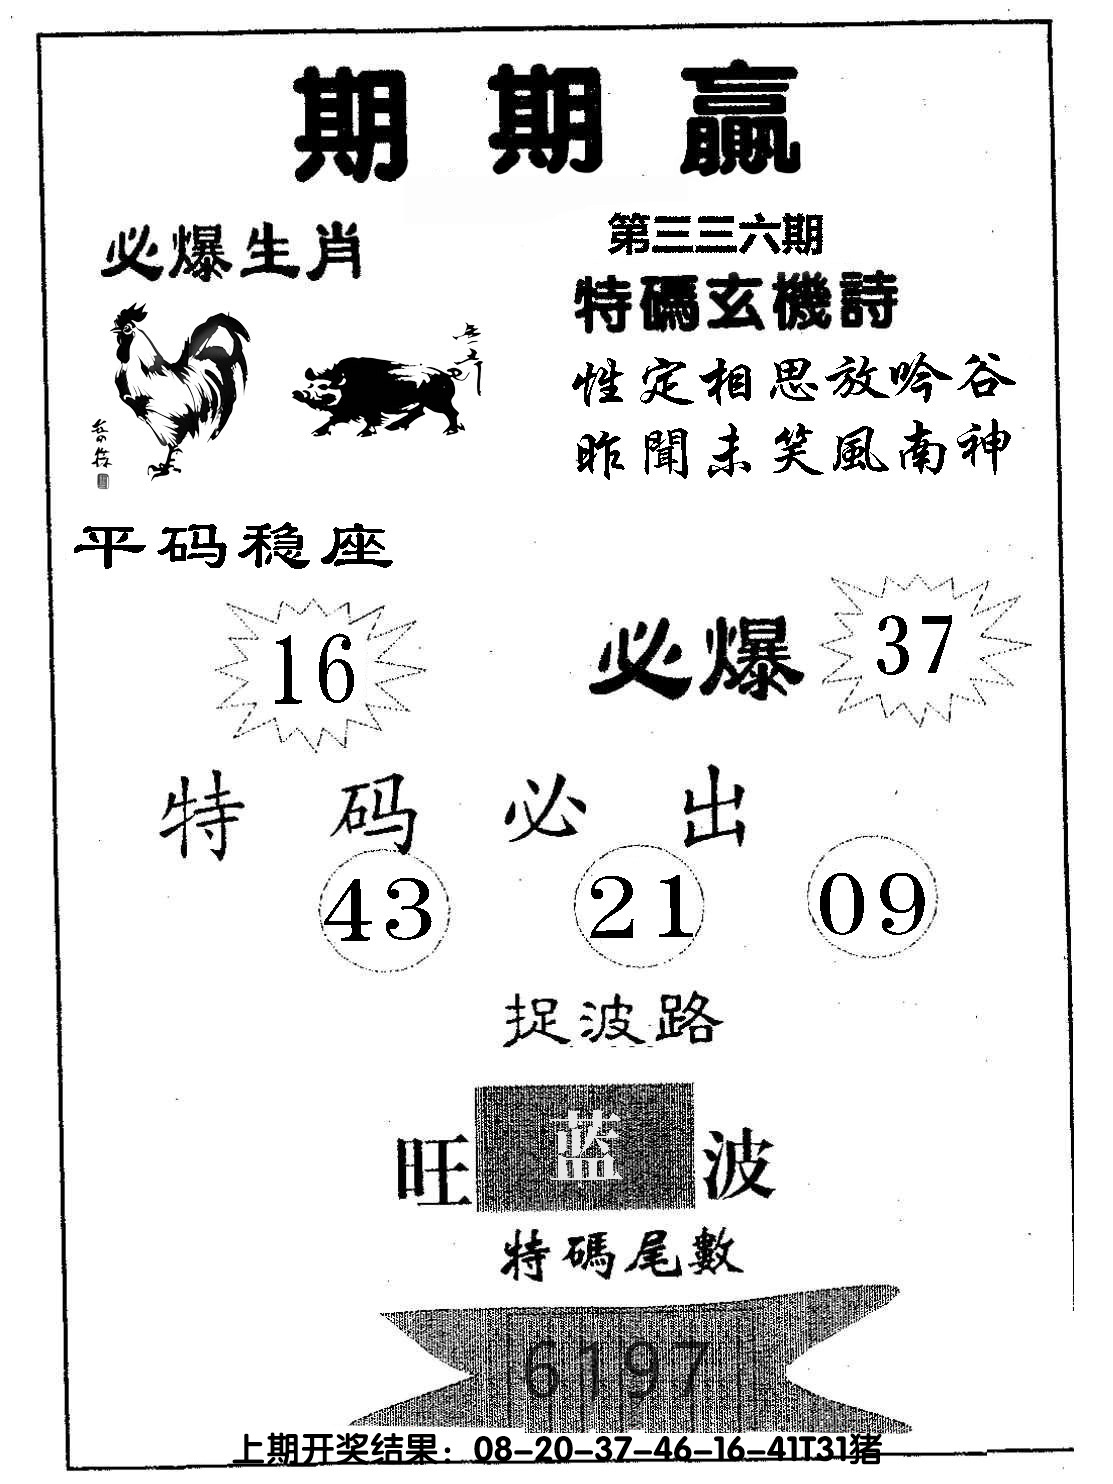 期期贏
必爆生肖
第三三六期
特碼玄機詩
性定相思放吟谷
昨聞未笑風南神
平码稳座
16
必爆 37
特码必出
43 21 09
捉波路
旺蓝波
特碼尾數
6197
上期开奖结果：08-20-37-46-16-41T31猪